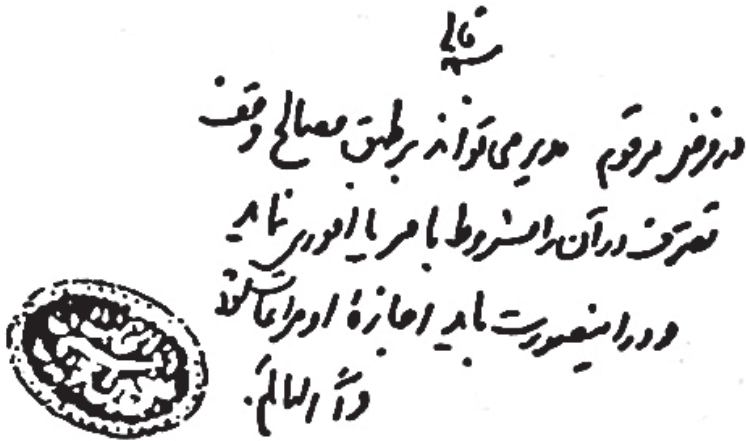 بسمه تعالی
در فرض مرقوم مدیر می‌تواند بر طبق مصالح وقف
تصرف در آن را مشروط بامر یا اموری نماید
و در اینصورت باید اجازهٔ او مراعات شود
والله العالم.